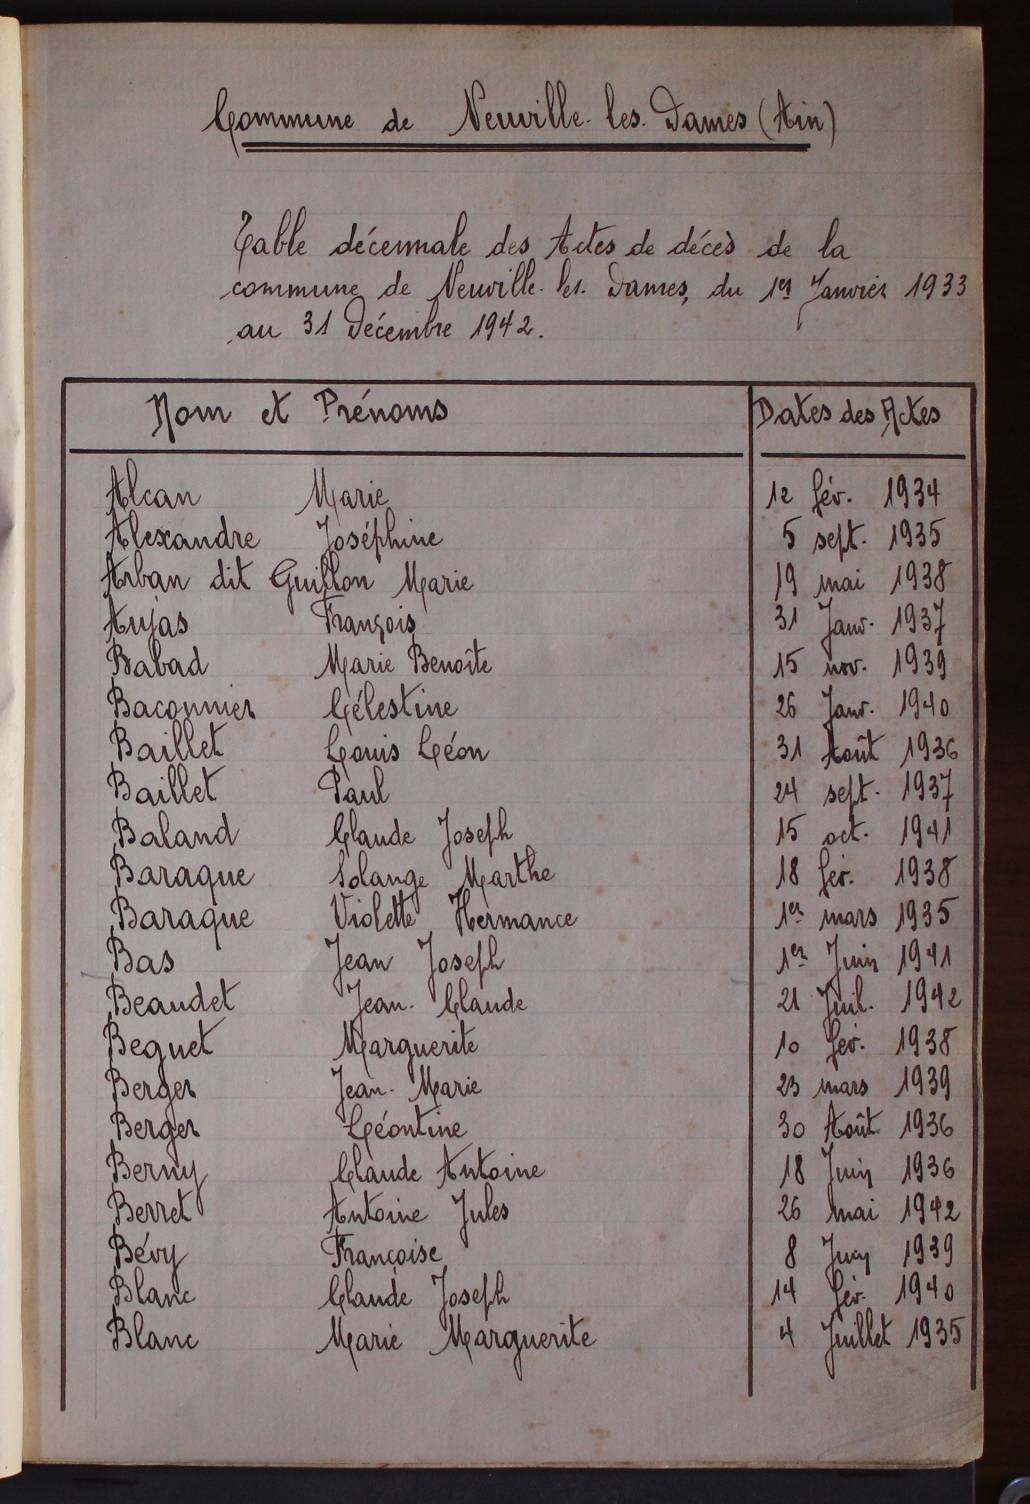 Commune de Neuville-les-Dames (Ain)
Table décennale des Actes de décès de la
commune de Neuville-les-Dames, du 1er Janvier 1933
au 31 Décembre 1942.
Nom et Prénoms Dates des Actes
Alcan Marie 12 fév. 1934
Alexandre Joséphine 5 sept. 1935
Arban dit Guillon Marie 19 mai 1938
Aujas François 31 Janv. 1937
Babad Marie Benoîte 15 nov. 1939
Baconnier Célestine 26 Janv. 1940
Baillet Louis Léon 31 Août 1936
Baillet Paul 24 sept. 1937
Baland Claude Joseph 15 oct. 1941
Baraque Solange Marthe 18 fév. 1938
Baraque Violette Hermance 1er mars 1935
Bas Jean Joseph 1er Juin 1941
Beaudet Jean-Claude 21 Juil. 1942
Beguet Marguerite 10 fév. 1938
Berger Jean-Marie 23 mars 1939
Berger Léontine 30 Août 1936
Berny Claude Antoine 18 Juin 1936
Berret Antoine Jules 26 mai 1942
Bévy Françoise 8 Juin 1939
Blanc Claude Joseph 14 fév. 1940
Blanc Marie Marguerite 4 Juillet 1935